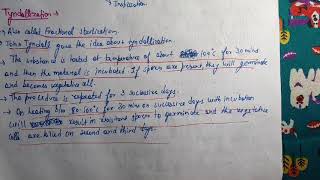 Indication
Tyndallization →
→ Also called Fractional sterlization.
→ John Tyndall gave the idea about tyndallization.
→ The substance is heated at temperature of about 100°C for 30 mins
and then the material is incubated. If spores are present, they will germinate
and becomes vegetative cell.
→ The procedure is repeated for 3 successive days.
→ On heating 80-100°C for 30 mins on successive days with incubation
will result in resistant spores to germinate and the vegetative
cells are killed on second and third days.